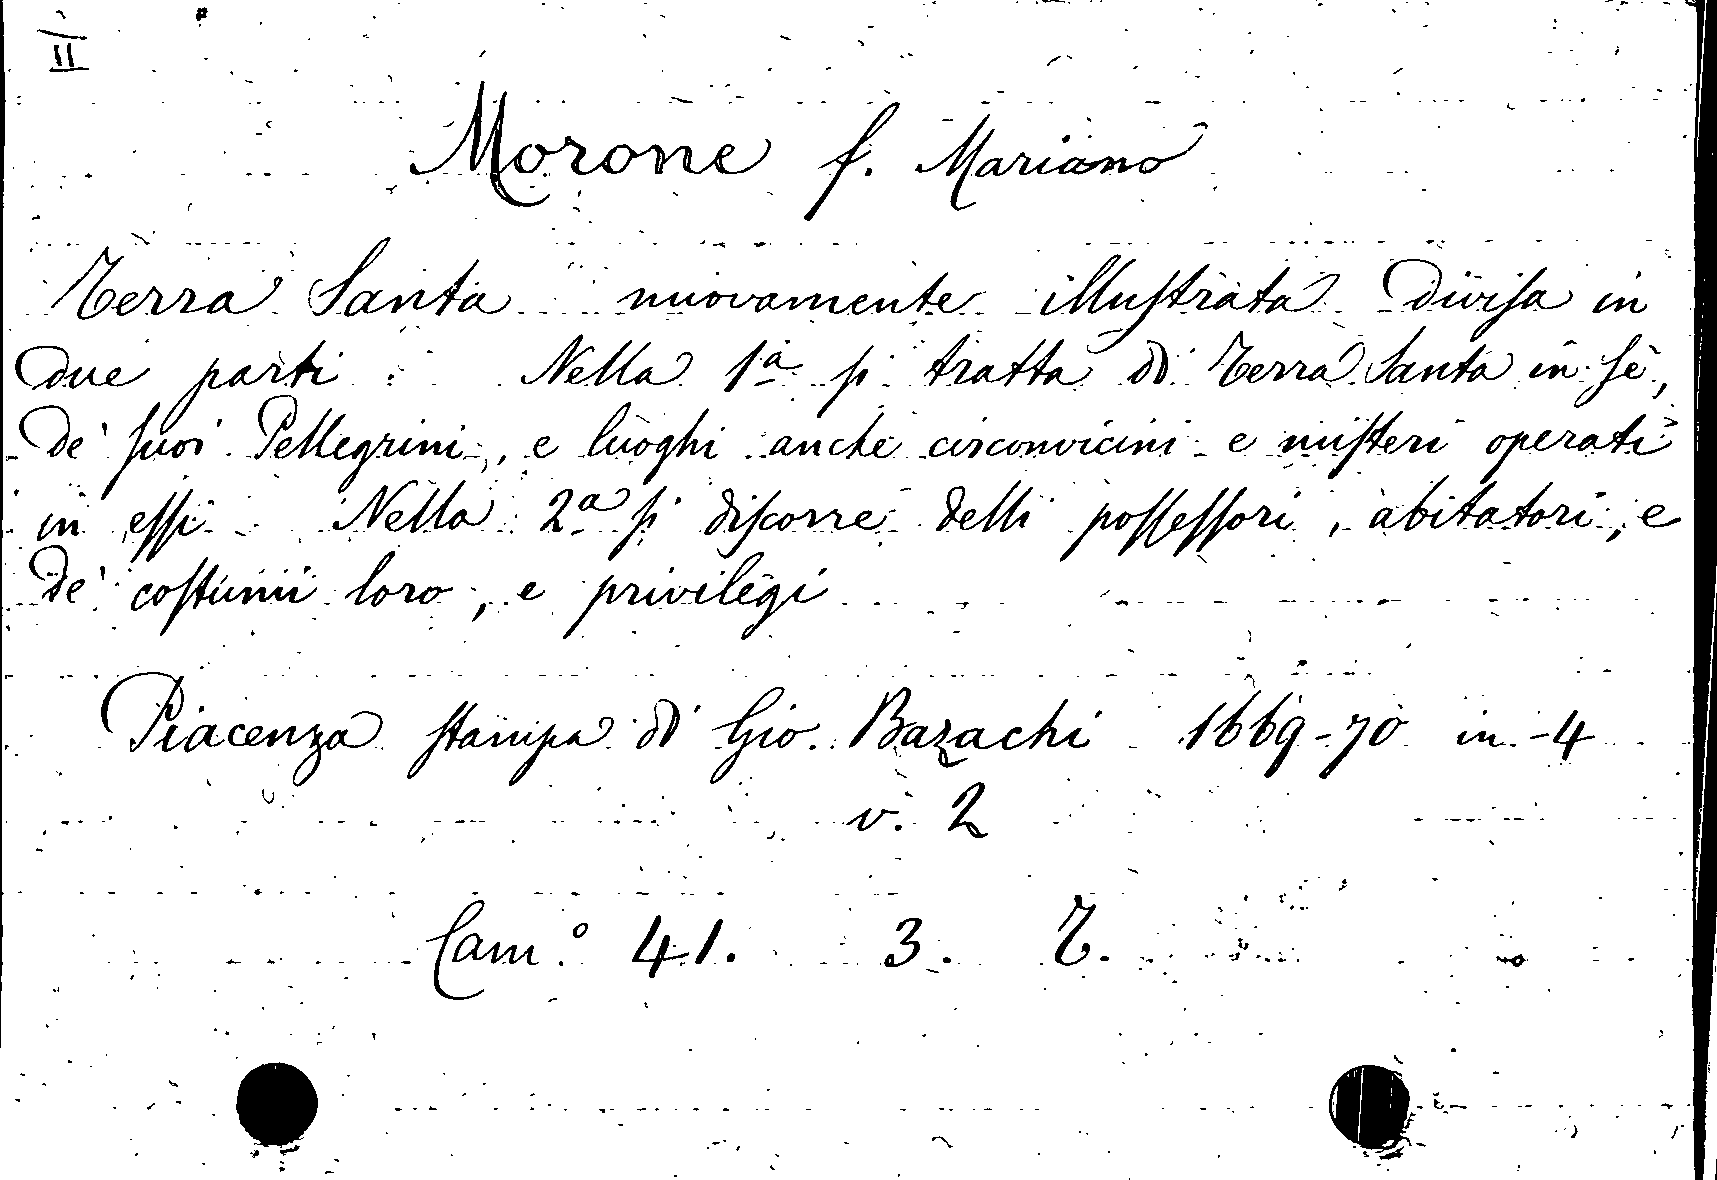 II
Morone f. Mariano
Terra Santa nuovamente illuſtrata divisa in
due parti : Nella 1ª ſi tratta di Terra Santa in ſè,
de' ſuoi Pellegrini, e luoghi anche circonvicini e miſteri operati
in eſſi Nella 2ª ſi diſcorre delli poſſeſſori, abitatori, e
de' coſtumi loro, e privilegi
Piacenza ſtampa di Gio. Bazachi 1669-70 in-4
v. 2
Cam.° 41. 3. T.